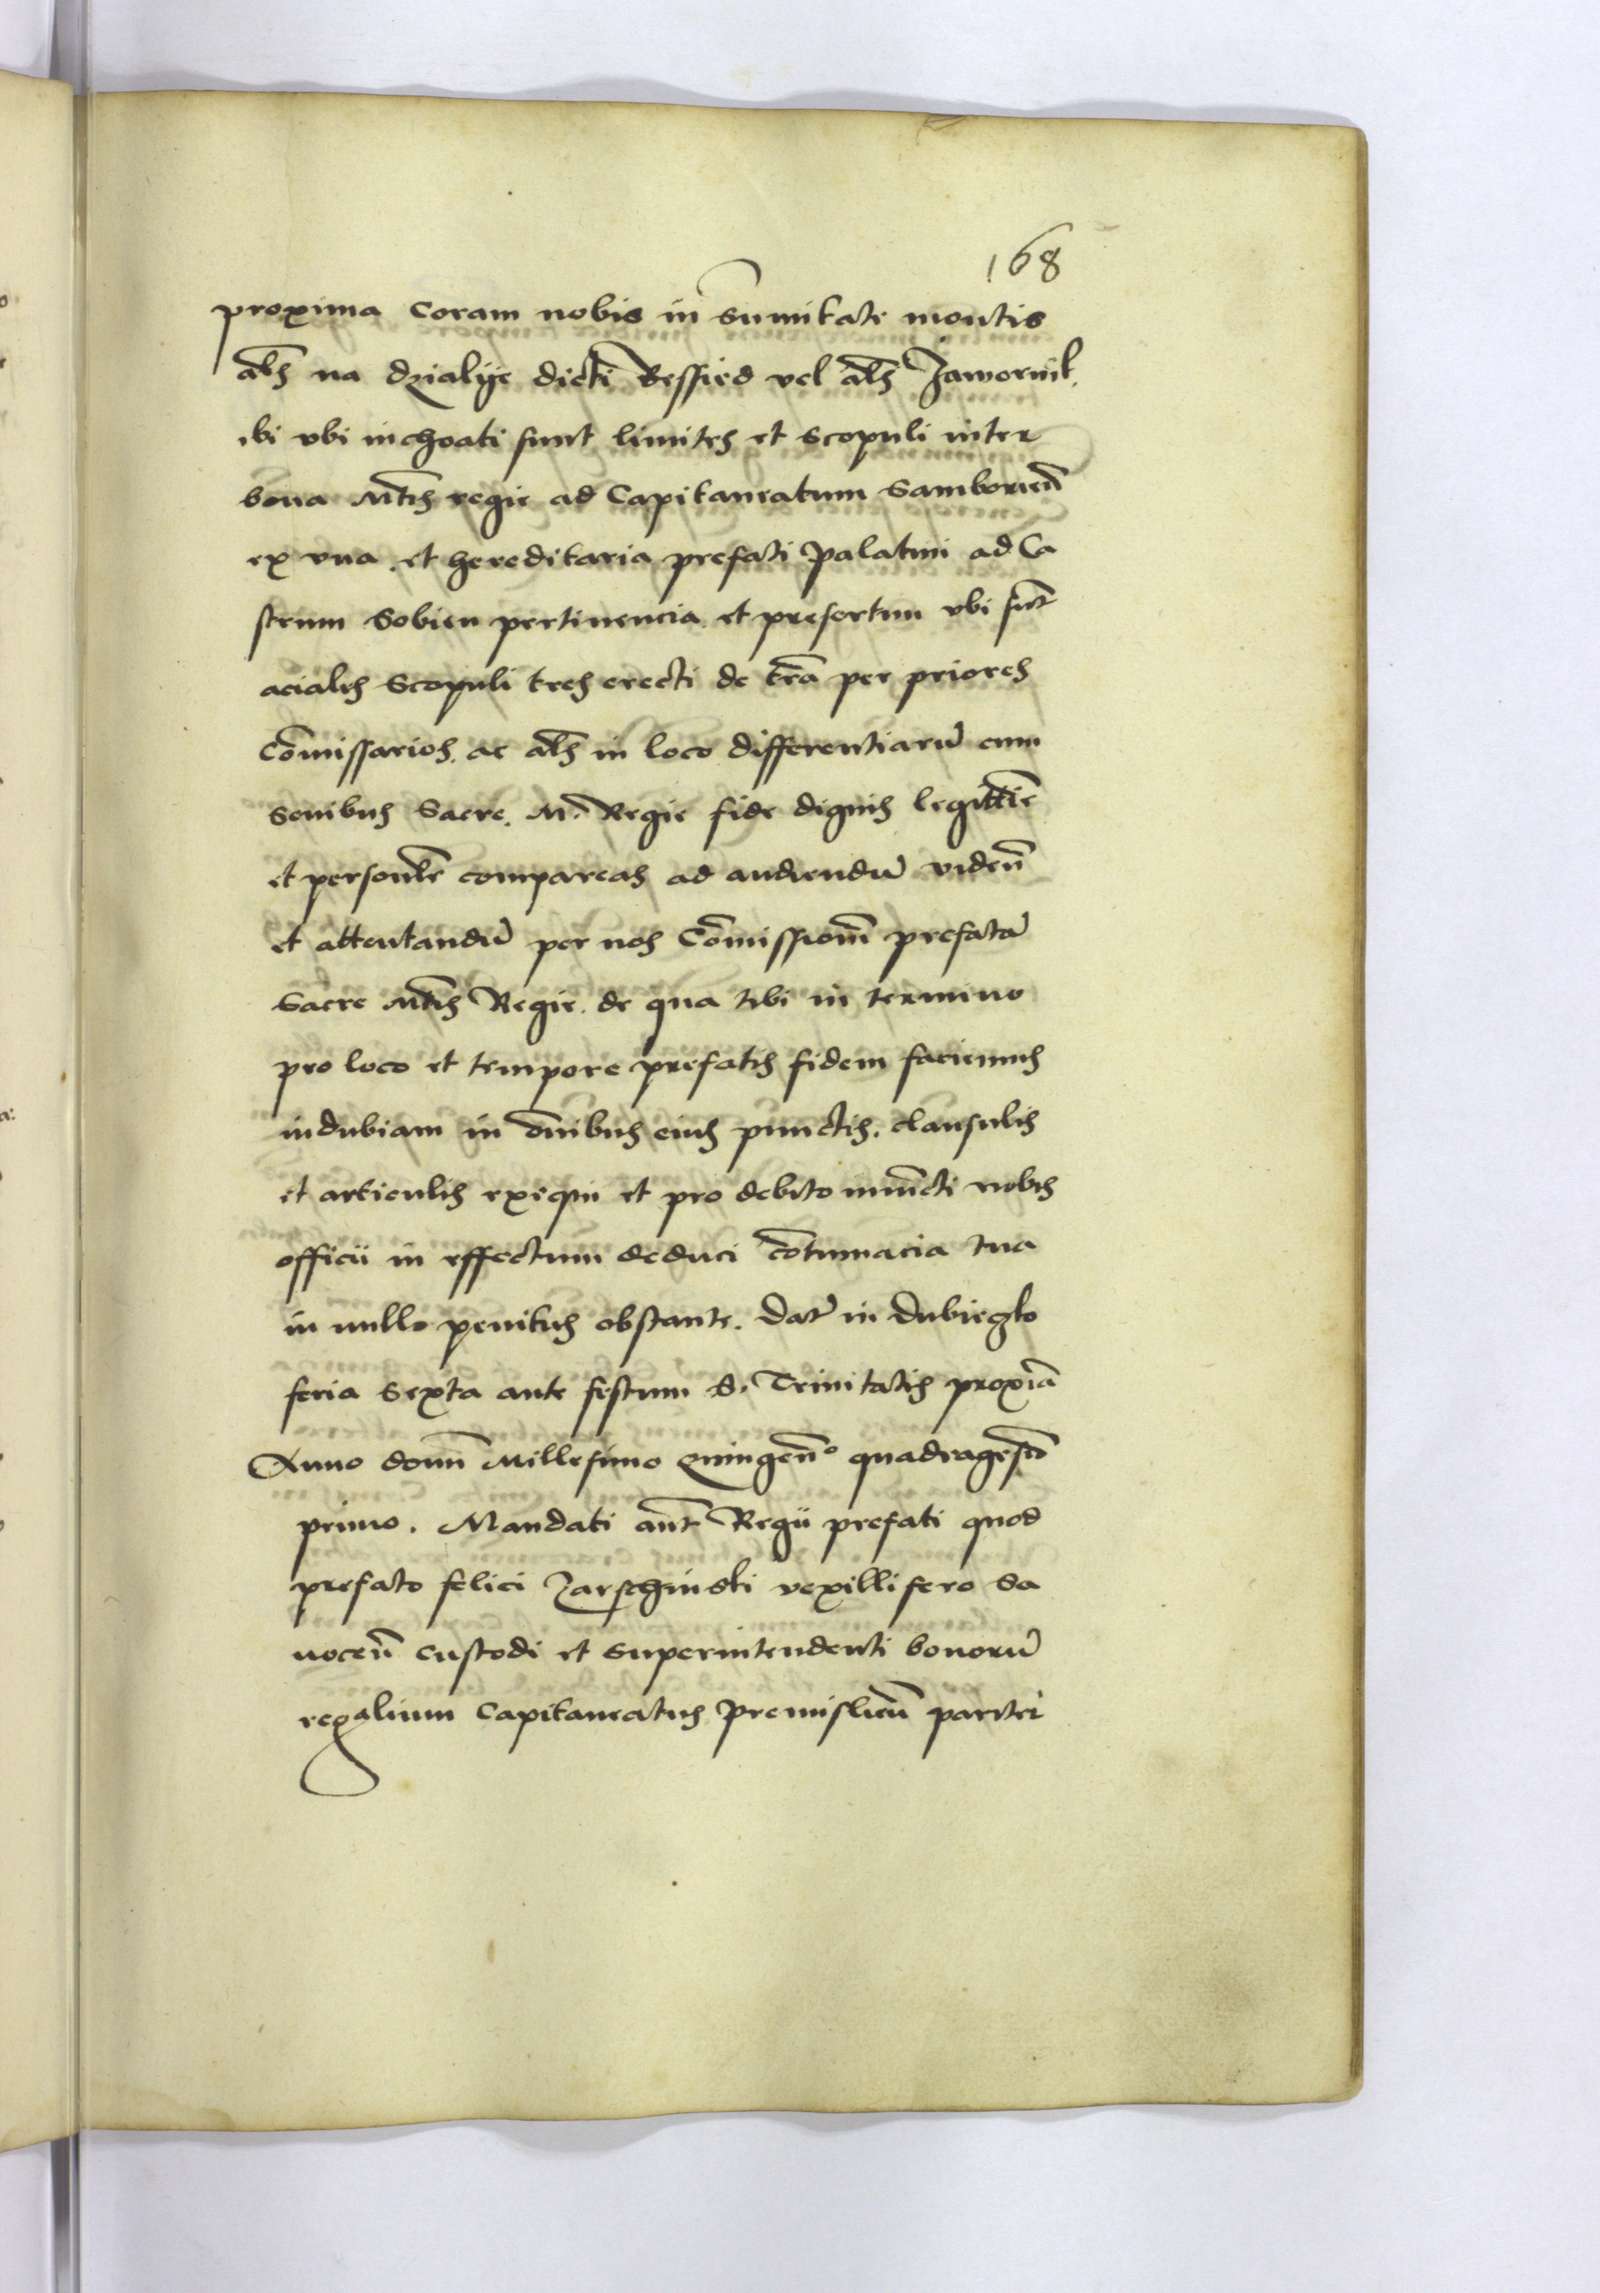 168
proxima Coram nobis in Sumitate montis
als na dzialije dicti Bessied vel als Jawornik.
ibi vbi inchoati sunt limites et Scopuli inter
bona Mtis regie ad Capitaneatum Samborien
ex vna. et hereditaria prefati Palatini ad Ca
strum Sobien pertinencia. et presertim vbi sut
aciales Scopuli tres erecti de tra per priores
Comissarios. ac als in loco differentiaru cum
Senibus Sacre. M. Regie fide dignis legittie
et personlr compareas ad audiendu viden
et attentandu per nos Comissionem prefata
Sacre Mtis Regie. de qua tibi in termino
pro loco et tempore prefatis fidem faciemus
indubiam in omibus eius punctis. clausulis
et articulis exequi et pro debito iniuncti nobis
officii in effectum deduci cotumacia tua
in nullo penitus obstante. dat in dubieglo
feria Sexta ante festum S. Trinitatis proxia
Anno domi Millesimo quingeno quadragesio
primo. Mandati aut Regii prefati quod
prefato felici vexillifero Sa
nocen custodi et Superintendenti bonoru
regalium Capitaneatus Premislien pariter